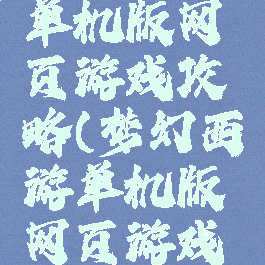 单机版网
页游戏攻
略(梦幻西
游单机版
网页游戏